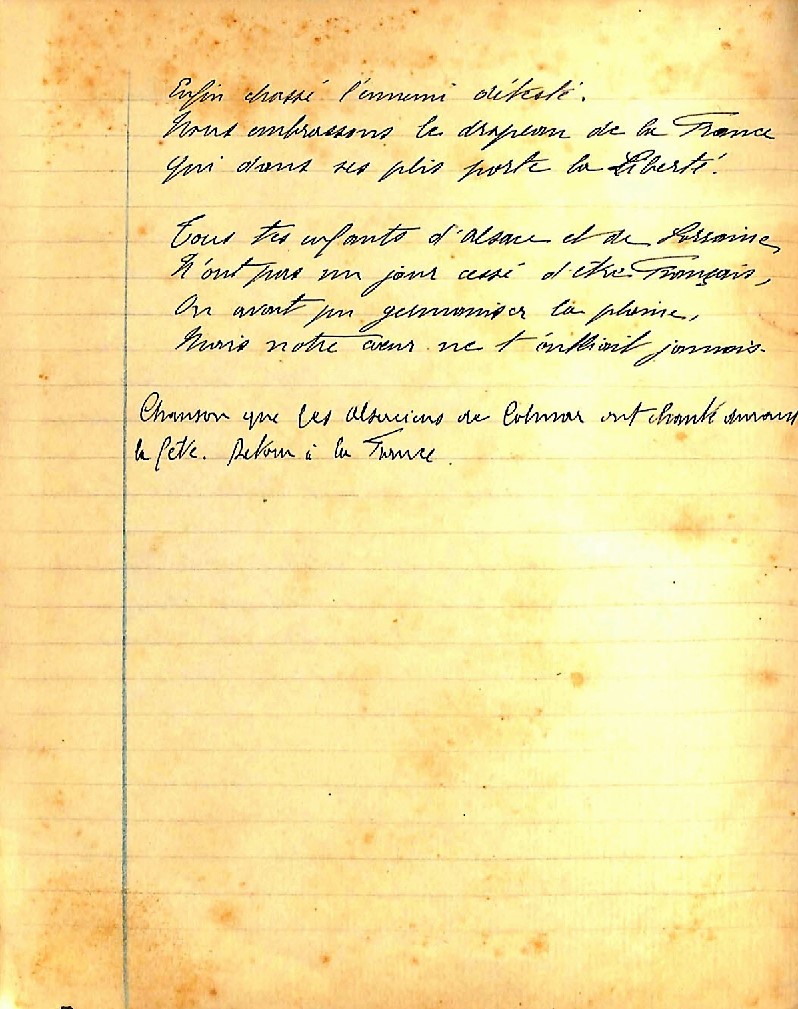 Enfin chassé l'ennemi détesté.
Nous embrassons le drapeau de la France
Qui dans ses plis porte la Liberté.
Tous tes enfants d'Alsace et de Lorraine,
N'ont pas un jour cessé d'être Français,
On avait pu germaniser la plaine,
Mais notre cœur ne t'oubliait jamais.
Chanson que les Alsaciens de Colmar ont chanté durant
la fête. Retour à la France.